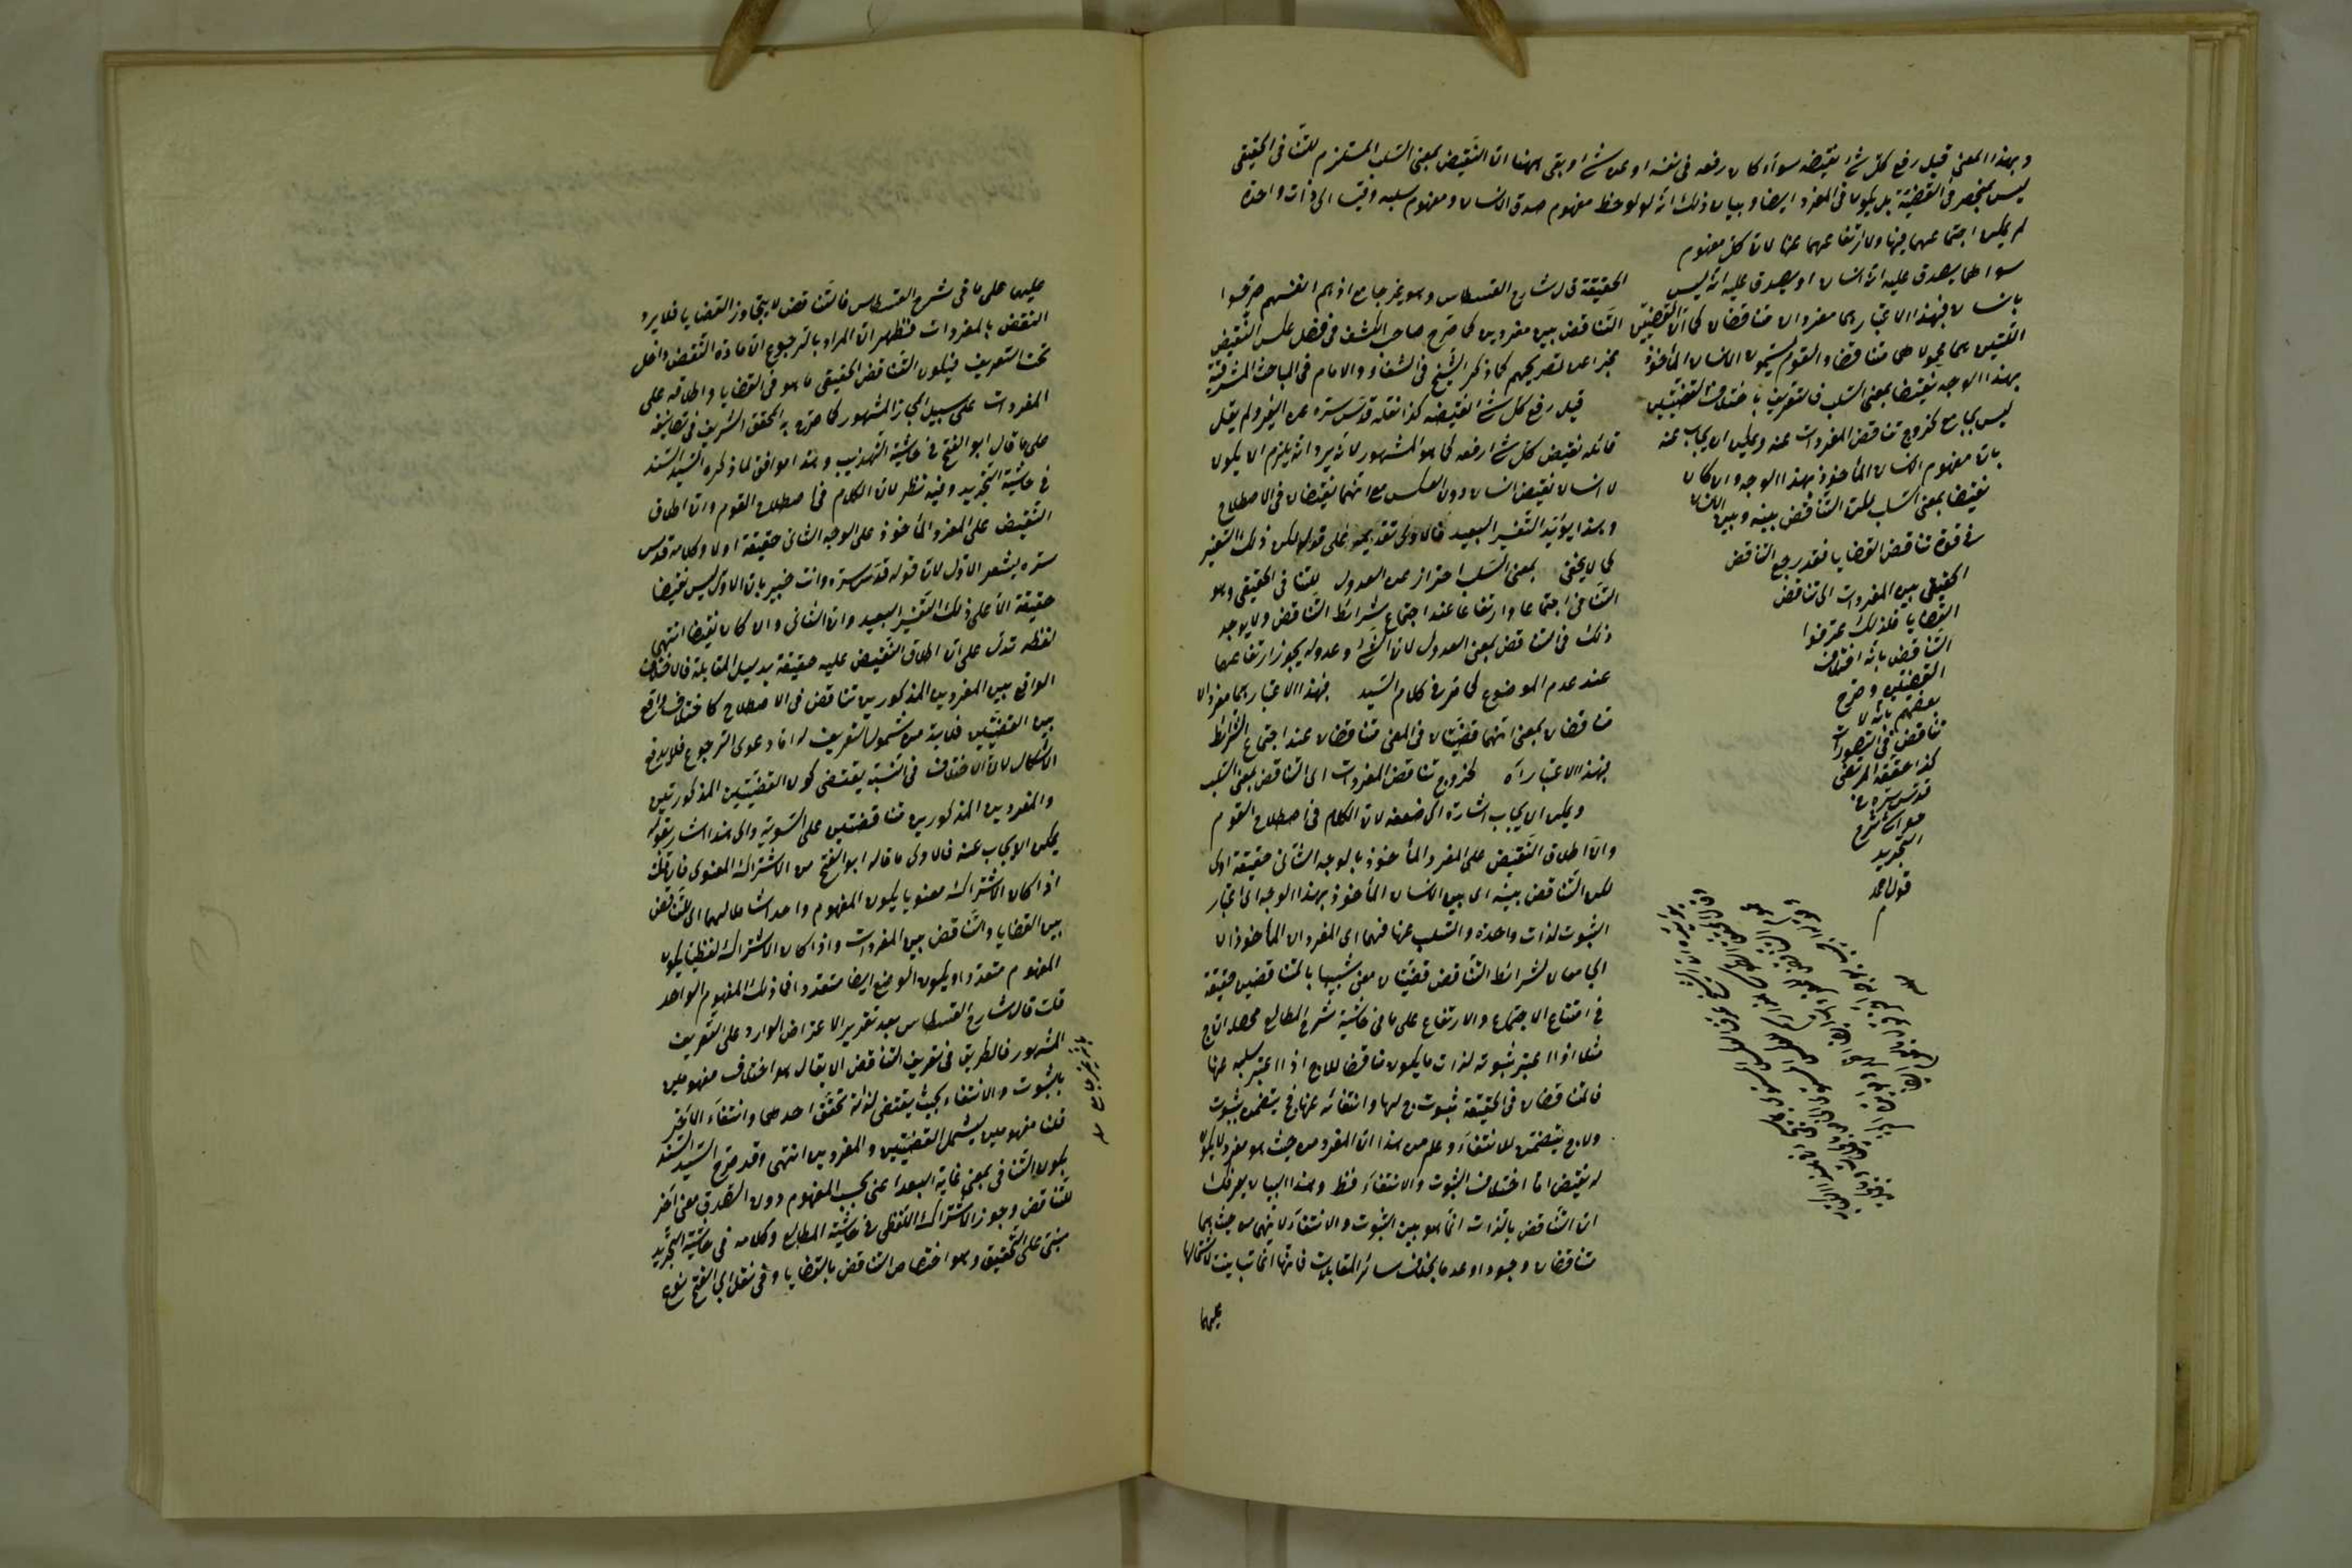 وبهذا المعنى قيل رفع كل شئ نقيضه سواء كان رفعه فى نفسه او عن شئ او بقى ههنا ان النقيض بمعنى السلب المستلزم للتنافى الحقيقى
ليس بمنحصر فى القضية بل يكون فى المفرد ايضا وبيان ذلك انه لو لوحظ مفهوم صدق الانسان ومفهوم سلبه وقيسا الى ذات واحدة
لم يمكن اجتماعهما فيها ولا ارتفاعهما عنها لان كل مفهوم
سواهما يصدق عليه انه انسان او يصدق عليه انه ليس
بانسان فبهذا الاعتبار هما مفردان متناقضان كما ان القضيتين
اللتين هما محمولاهما متناقضا والقوم يسمون الانسان المأخوذ
بهذا الوجه نقيضا بمعنى السلب فالتعريف باختلاف القضيتين
ليس بجامع لخروج تناقض المفردات عنه ويمكن ان يجاب عنه
بان مفهوم الانسان المأخوذ بهذا الوجه وان كان
نقيضا بمعنى السلب لكن التناقض بينه وبين الانسان
فى قوة تناقض القضايا فقد رجع التناقض
الحقيقى بين المفردات الى تناقض
القضايا فلذلك عرفوا
التناقض بانه اختلاف
القضيتين وصرح
بعضهم بانه لا
تناقض فى التصورات
كذا حققه المرتضى
قدس سره فى
حواشى شرح
التجريد
قول احمد
الحقيقة قال شارح القسطاس وهو غير جامع اذ هم انفسهم صرحوا
التناقض بين مفردين كما صرح صاحب الكشف فى فصل عكس النقيض
مخبرا عن تصريحهم كما ذكر الشيخ فى الشفاء والامام فى المباحث المشرقية
قيل رفع كل شئ نقيضه كذا نقله قدس سره عن الغير ولم يقل
قائله نقيض كل شئ رفعه كما هو المشهور لانه يرد انه يلزم ان يكون
لا انسان نقيض انسان دون العكس مع انهما نقيضان فى الاصطلاح
وبهذا يؤيد التفسير البعيد فالاولى تقديمه على قوله لكن ذلك التفسير
كما لا يخفى بمعنى السلب احتراز عن العدول للتنافى الحقيقى وهو
التنافى اجتماعا وارتفاعا عند اجتماع شرائط التناقض ولا يوجد
ذلك فى التناقض بمعنى العدول لان الشئ وعدوله يجوز ارتفاعهما
عند عدم الموضوع كما مر فى كلام السيد فبهذا الاعتبار هما مفردان
متناقضان بمعنى انهما قضيتان فى المعنى متناقضان عند اجتماع الشرائط
بهذا الاعتبار اه لخروج تناقض المفردات اى التناقض بمعنى السلب
ويمكن ان يجاب اشارة الى ضعفه لان الكلام فى اصطلاح القوم
وان اطلاق النقيض على المفرد المأخوذ بالوجه الثانى حقيقة اولى
لكن التناقض بينه اى بين الانسان المأخوذ بهذا الوجه اى اعتبار
الثبوت لذات واحدة والسلب عنها فهما اى المفردان المأخوذان
الجامعان لشرائط التناقض قضيتان معنى شبيها بالمتناقضين حقيقة
فى امتناع الاجتماع والارتفاع على ما فى حاشية شرح المطالع محصله ان ج
مثلا اذا اعتبر ثبوته لذات ما يكون مناقضا للاج اذا اعتبر سلبه عنها
فالمتناقضان فى الحقيقة ثبوت ج لها وانتفائه عنها فج يتضمن بثبوت
ولاج يتضمن للانتفاء وعلم من هذا ان المفرد من حيث هو مفرد لا يكون
له نقيض انما اختلاف الثبوت والانتفاء فقط وبهذا البيان يعرفك
ان التناقض بالذات انما هو بين الثبوت والانتفاء لانهما من حيث هما
متناقضان وجودا وعدما بخلاف سائر المتقابلات فانها انما تباينت لاشتمالها
عليهما
عليهما على ما فى شرح القسطاس فالتناقض لا يتجاوز القضايا فلا يرد
النقض بالمفردات فظهر ان المراد بالرجوع ان مادة النقض داخل
تحت التعريف فيكون التناقض الحقيقى ما هو فى القضايا واطلاقه على
المفردات على سبيل المجاز المشهور كما صرح به المحقق الشريف فى تصانيفه
على ما قال ابو الفتح فى حاشية التهذيب وهذا موافق لما ذكره السيد السند
فى حاشية التجريد وفيه نظر لان الكلام فى اصطلاح القوم وان اطلاق
النقيض على المفرد المأخوذ على الوجه الثانى حقيقة اولا وكلامه قدس
سره يشعر الاول لان قوله قدس سره وانت خبير بان الاول ليس نقيضا
حقيقة الا على ذلك التفسير البعيد وان الثانى وان كان نقيضا انتهى
لفظه تدل على ان اطلاق النقيض عليه حقيقة بدليل المقابلة فالاختلاف
الواقع بين المفردين المذكورين تناقض فى الاصطلاح كاختلاف واقع
بين القضيتين فلابد من شمول التعريف له اما دعوى الرجوع فلا يدفع
الاشكال لان الاختلاف فى النسبة يقتضى كون القضيتين المذكورتين
والمفردين المذكورين متناقضتين على السوية والى هذا اشار بقوله
يمكن ان يجاب عنه فالاولى ما قاله ابو الفتح من الاشتراك المعنوى فان قلت
اذا كان الاشتراك معنويا يكون المفهوم واحدا شاملا لهما اى للتناقض
بين القضايا والتناقض بين المفردات واذا كان الاشتراك لفظيا يكون
المفهوم متعددا ويكون الوضع ايضا متعددا فما ذلك المفهوم الواحد
قلت قال شارح القسطاس بعد تقرير الاعتراض الوارد على التعريف
المشهور فالطريق فى تعريف التناقض ان يقال هو اختلاف مفهومين
بالثبوت والانتفاء بحيث يقتضى لذاته تحقق احدهما وانتفاء الاخر
فلنا مفهومين ليشمل القضيتين والمفردين انتهى وقد صرح السيد السند
بكون التنافى بمعنى غاية البعد اعنى بحسب المفهوم دون الصدق معنى اخر
للتناقض وجوز الاشتراك اللفظى فى حاشية المطالع وكلامه فى حاشية التجريد
مبنى على التحقيق وهو اختصاص التناقض بالقضايا وفى نقل ابى الفتح نوع